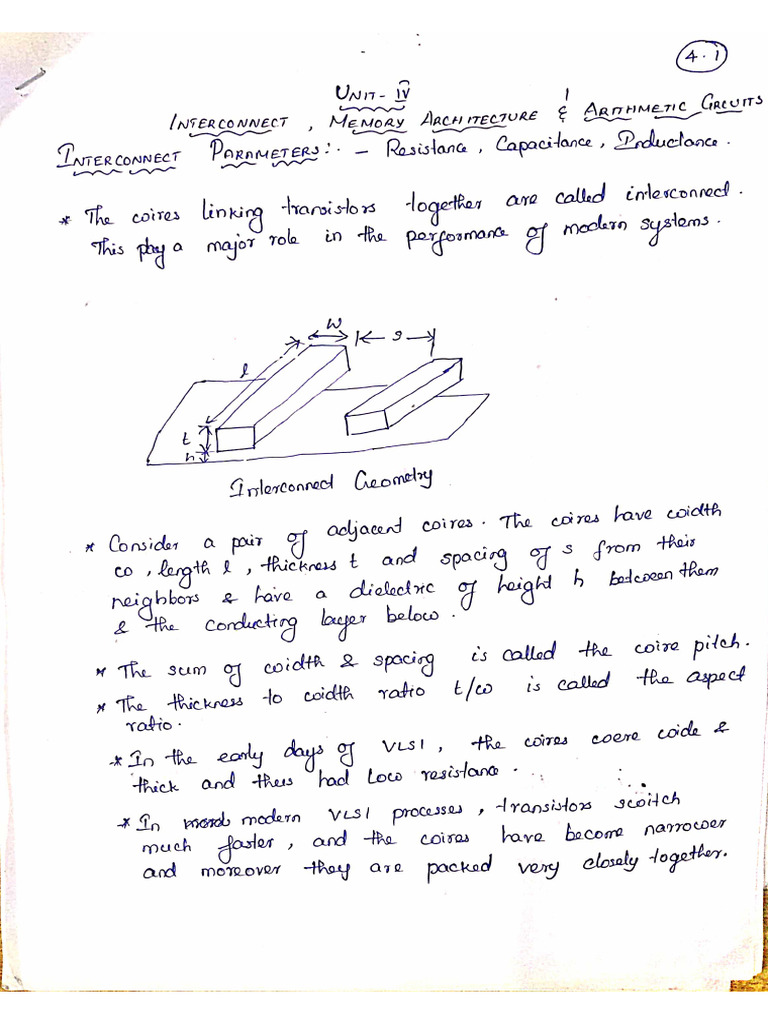 4.1
UNIT - IV
INTERCONNECT, MEMORY ARCHITECTURE & ARITHMETIC CIRCUITS
INTERCONNECT PARAMETERS:- – Resistance, Capacitance, Inductance.
* The wires linking transistors together are called interconnect.
This play a major role in the performance of modern systems.
w
s
l
t
h
Interconnect Geometry
* Consider a pair of adjacent wires. The wires have width
w, length l, thickness t and spacing of s from their
neighbors & have a dielectric of height h between them
& the conducting layer below.
* The sum of width & spacing is called the wire pitch.
* The thickness to width ratio t/w is called the aspect
ratio.
* In the early days of VLSI, the wires were wide &
thick and thus had low resistance.
* In modern VLSI processes, transistors switch
much faster, and the wires have become narrower
and moreover they are packed very closely together.